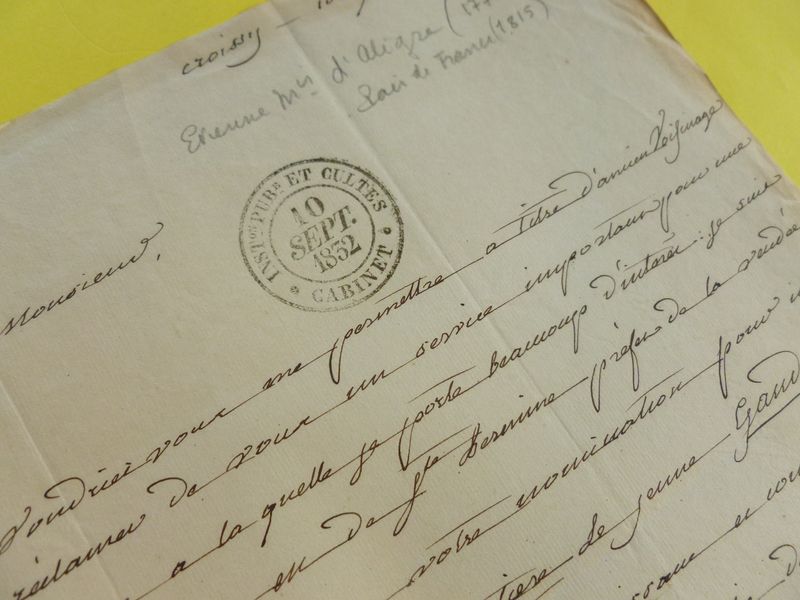 croissy
Etienne Mis d'Aligre (177
Pair de France (1815)
INSTION PUBE ET CULTES
10
SEPT.
1832
CABINET
Monsieur,
Voudriez vous me permettre a titre d'ancien Voisinage
réclamer de vous un service important pour une
a la quelle je porte beaucoup d'interet: je suis
en de Ste hermine préfet de la vendée
votre nomination pour
le jeune Gand